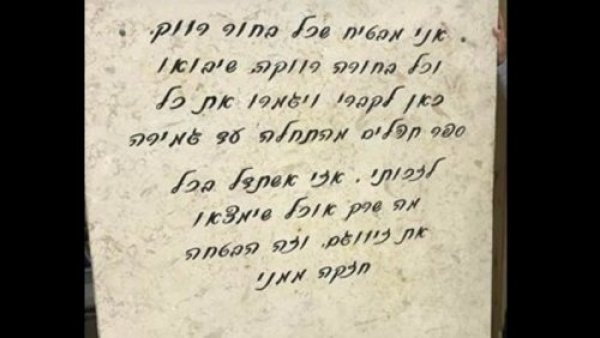 אני מבטיח שכל בחור רווק.
וכל בחורה רווקה, שיבואו
כאן לקברי ויגמרו את כל
ספר תהלים מהתחלה עד גמירה
לזכותי. אזי אשתדל בכל
מה שרק אוכל שימצאו
את זיווגם. וזה הבטחה
חזקה ממני